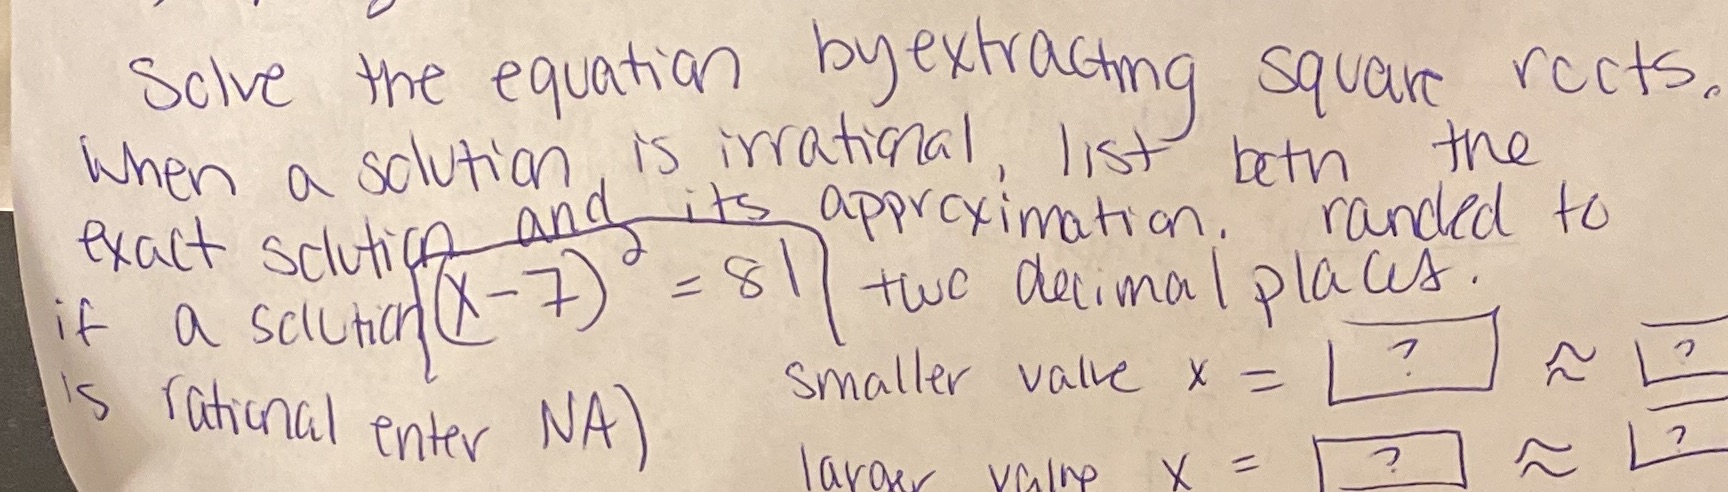 Solve the equation by extracting square roots.
When a solution is irrational, list both the
exact solution and its approximation. randed to
(x-7)² = 81 two decimal places.
if a solution
is rational enter NA)
smaller value x = ? ≈ ?
larger value x = ? ≈ ?